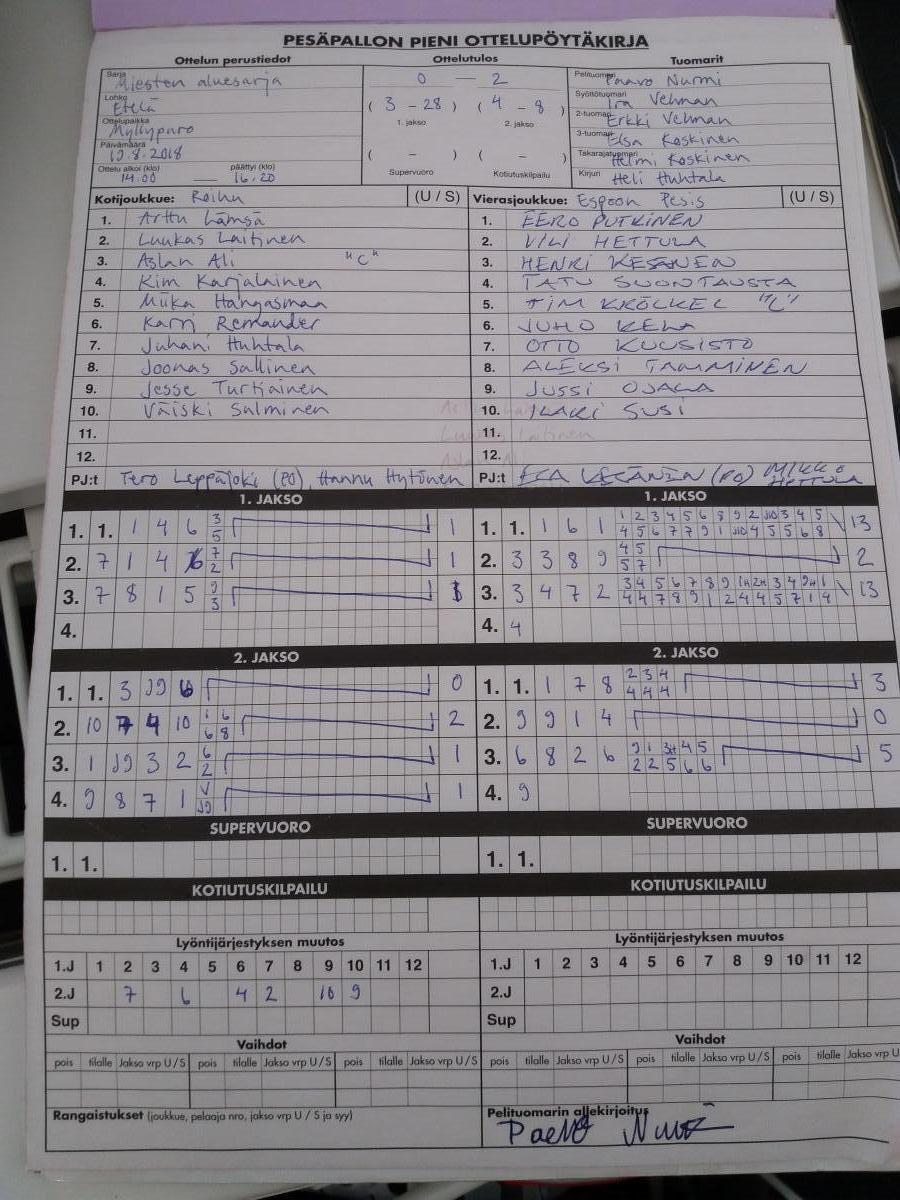 PESÄPALLON PIENI OTTELUPÖYTÄKIRJA
Ottelun perustiedot Ottelutulos Tuomarit
Sarja Miesten aluesarja 0 — 2 Pelituomari Paavo Nurmi
Lohko Etelä ( 3 - 28 ) ( 4 - 8 ) Syöttötuomari Ira Vehman
Ottelupaikka Myllypuro 1. jakso 2. jakso 2-tuomari Erkki Vehman
Päivämäärä 19.8.2018 3-tuomari Elsa Koskinen
Ottelu alkoi (klo) 14.00 — päättyi (klo) 16.20 ( - ) ( - ) Takarajatuomari Helmi Koskinen
Supervuoro Kotiutuskilpailu Kirjuri Heli Huhtala
Kotijoukkue: Roihu (U / S) Vierasjoukkue: Espoon Pesis (U / S)
1. Arttu Lämsä 1. EERO PUTKINEN
2. Luukas Laitinen 2. VILI HETTULA
3. Aslan Ali "C" 3. HENRI KESÄNEN
4. Kim Karjalainen 4. TATU SUONTAUSTA
5. Miika Hangasmaa 5. TIM KRÖCKEL "C"
6. Karri Remander 6. JUHO KELA
7. Juhani Huhtala 7. OTTO KUUSISTO
8. Joonas Sallinen 8. ALEKSI TAMMINEN
9. Jesse Turtiainen 9. JUSSI OJALA
10. Väiski Salminen 10. ILARI SUSI
11. 11.
12. 12.
PJ:t Tero Leppäjoki (PO), Hannu Hytönen PJ:t ESA KESÄNEN (PO) MIKKO HETTULA
1. JAKSO 1. JAKSO
1. 1. 1 4 6 3 5 1 1. 1. 1 6 1
2. 7 1 4 6 7 2 1 2. 3 3 8 9 4 5 5 7 2
3. 7 8 1 5 9 3 1 3. 3 4 7 2 13
4. 4. 4
2. JAKSO 2. JAKSO
1. 1. 3 J9 6 0 1. 1. 1 7 8 2 3 4 4 4 4 3
2. 10 7 4 10 1 6 6 8 2 2. 9 9 1 4 0
3. 1 J9 3 2 6 2 1 3. 6 8 2 6 9 1 3H 4 5 2 2 5 6 6 5
4. 9 8 7 1 V J9 1 4. 9
SUPERVUORO SUPERVUORO
1. 1. 1. 1.
KOTIUTUSKILPAILU KOTIUTUSKILPAILU
Lyöntijärjestyksen muutos Lyöntijärjestyksen muutos
1.J 1 2 3 4 5 6 7 8 9 10 11 12 1.J 1 2 3 4 5 6 7 8 9 10 11 12
2.J 7 6 4 2 10 9 2.J
Sup Sup
Vaihdot Vaihdot
pois tilalle Jakso vrp U / S pois tilalle Jakso vrp U / S pois tilalle Jakso vrp U / S pois tilalle Jakso vrp U / S pois tilalle Jakso vrp U / S pois tilalle Jakso vrp U
Rangaistukset (joukkue, pelaaja nro, jakso vrp U / S ja syy) Pelituomarin allekirjoitus